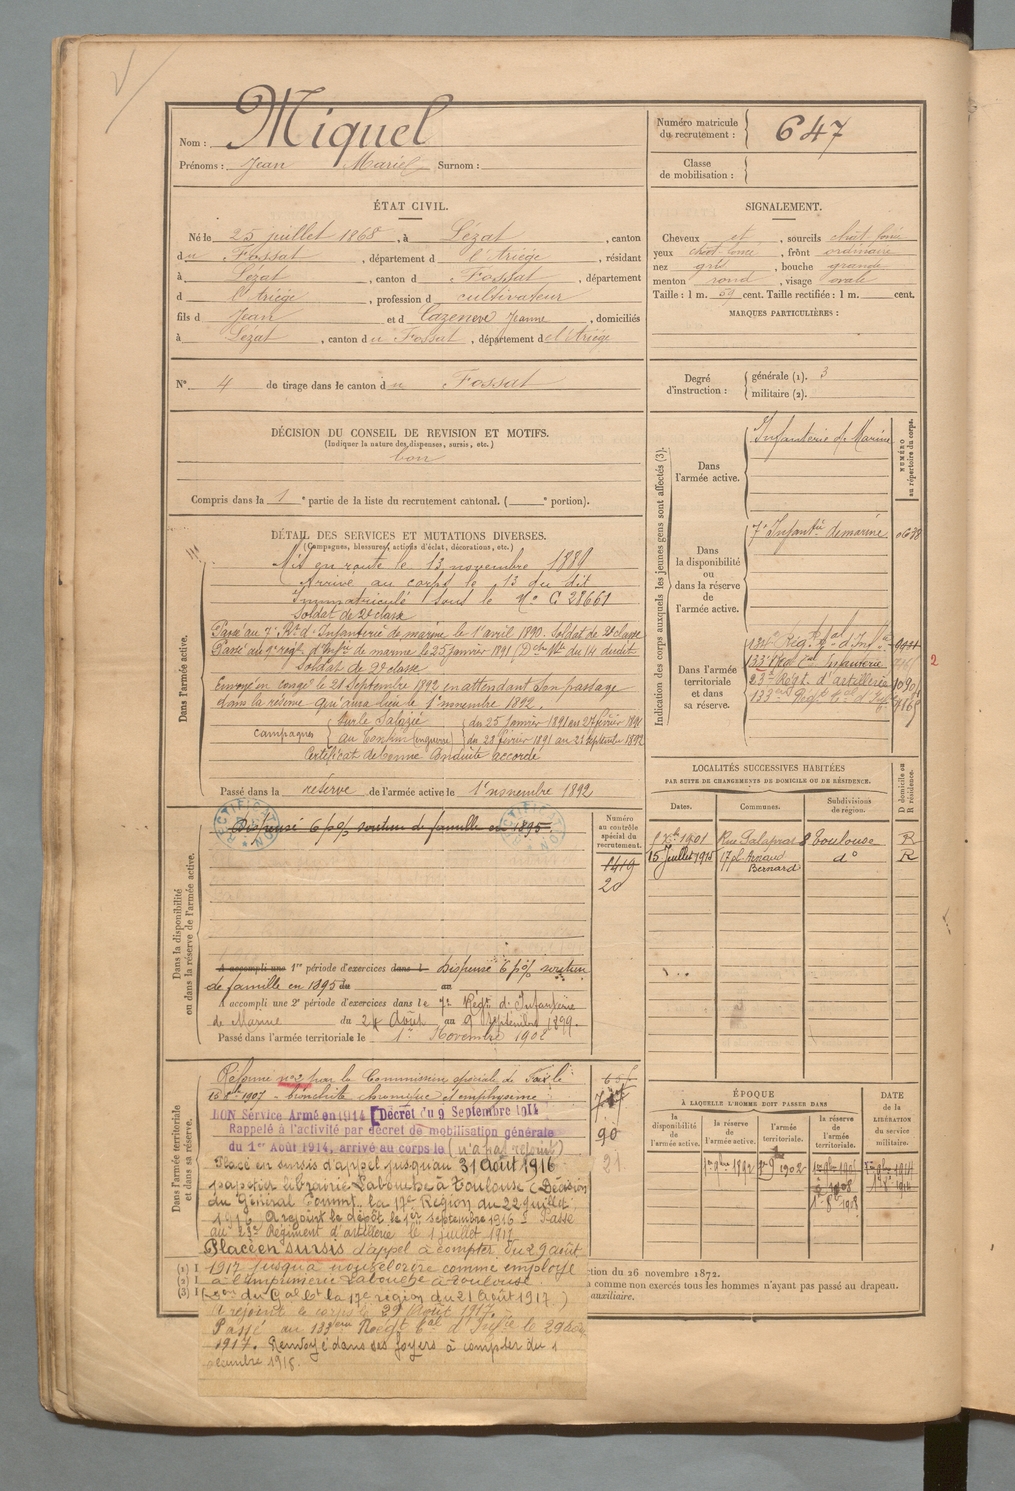 Nom : Miquel
Prénoms : Jean Marie Surnom :
Numéro matricule du recrutement : 647
Classe de mobilisation :
ÉTAT CIVIL.
Né le 25 juillet 1868, à Lézat, canton
du Fossat, département d l'Ariège, résidant
à Lezat, canton d Fossat, département
d l'Ariège, profession d cultivateur
fils d Jean et d Cazeneuve Jeanne, domiciliés
à Lézat, canton du Fossat, département de l'Ariège
N° 4 de tirage dans le canton du Fossat
SIGNALEMENT.
Cheveux et, sourcils chât foncé
yeux chât foncé, front ordinaire
nez gros, bouche grande
menton rond, visage ovale
Taille : 1 m. 59 cent. Taille rectifiée : 1 m. cent.
MARQUES PARTICULIÈRES :
Degré d'instruction : générale (1). 3
militaire (2).
DÉCISION DU CONSEIL DE REVISION ET MOTIFS.
(Indiquer la nature des dispenses, sursis, etc.)
bon
Compris dans la 1e partie de la liste du recrutement cantonal. ( e portion).
DÉTAIL DES SERVICES ET MUTATIONS DIVERSES.
(Campagnes, blessures, actions d'éclat, décorations, etc.)
Dans l'armée active.
Mis en route le 13 novembre 1889
Arrivé au corps le 13 du dit
Immatriculé sous le N° C 28661
Soldat de 2e classe
Passé au 7e Rt d'Infanterie de marine le 1er avril 1890. Soldat de 2e classe
Passé au 9e régt d'Infrie de marine le 25 janvier 1891 (Don Mlle du 14 du dit
Soldat de 2e classe
Envoyé en congé le 21 Septembre 1892 en attendant son passage
dans la réserve qui aura lieu le 1er novembre 1892.
Campagnes
Sur le Salazie du 25 Janvier 1891 au 27 février 1891
au Tonkin (en guerre) du 28 février 1891 au 21 Septembre 1892
Certificat de bonne Conduite accordé
Passé dans la réserve de l'armée active le 1er novembre 1892
Indication des corps auxquels les jeunes gens sont affectés (3).
NUMÉRO au répertoire du corps.
Dans l'armée active.
Infanterie de Marine
Dans la disponibilité ou dans la réserve de l'armée active.
7e Infantie de marine
Dans l'armée territoriale et dans sa réserve.
133e Régt tal Infanterie
2
23e Régt d'artillerie
133e Régt tal d'Infie
LOCALITÉS SUCCESSIVES HABITÉES
PAR SUITE DE CHANGEMENTS DE DOMICILE OU DE RÉSIDENCE.
Dates. Communes. Subdivisions de région. D domicile ou R résidence.
1901 Rue Palaprat 8 Toulouse R
15 Juillet 1915 17 pl. Arnaud Bernard do R
Dans la disponibilité ou dans la réserve de l'armée active.
RECTIFICATION
RECTIFICATION
Dispensé 6 p% soutien de famille en 1895.
Numéro au contrôle spécial du recrutement.
1419
20
A accompli une 1re période d'exercices dans l Dispensé 6 p% soutien
de famille en 1895 du au
A accompli une 2e période d'exercices dans le 7e Régt d'Infanterie
de Marine du 24 Août au 9 Septembre 1899.
Passé dans l'armée territoriale le 1er Novembre 1902
Dans l'armée territoriale et dans sa réserve.
Réformé n°2 par la Commission spéciale de Foix le
1907 - bronchite chronique et emphysème
BON Service Armé en 1914 [Décret du 9 Septembre 1914
Rappelé à l'activité par décret de mobilisation générale
du 1er Août 1914, arrivé au corps le (n'a pas rejoint)
90
21
Placé en sursis d'appel jusqu'au 31 Août 1916
papeterie librairie Labouche à Toulouse (Décision
du Général Commt la 17e Région du 22 Juillet
1916 A rejoint le dépôt le 1er septembre 1916. Passé
au 23e Régiment d'artillerie le 1 juillet 1917
Placé en sursis d'appel à compter du 29 août
1917 jusqu'à nouvel ordre comme employé
à l'Imprimerie Labouche à Toulouse.
(Don du Gal Ct la 17e région du 21 Août 1917.)
A rejoint le corps le 29 Août 1917.
Passé au 133eme Régt tal d'Infie le 29 août
1917. Renvoyé dans ses foyers à compter du 1
décembre 1918.
ÉPOQUE
À LAQUELLE L'HOMME DOIT PASSER DANS
DATE DE LA LIBÉRATION du service militaire.
la disponibilité de l'armée active. la réserve de l'armée active. l'armée territoriale. la réserve de l'armée territoriale.
1er 9bre 1892 1er 9bre 1902
(1) I
(2) I
(3) I
ction du 26 novembre 1872.
a comme non exercés tous les hommes n'ayant pas passé au drapeau.
auxiliaire.